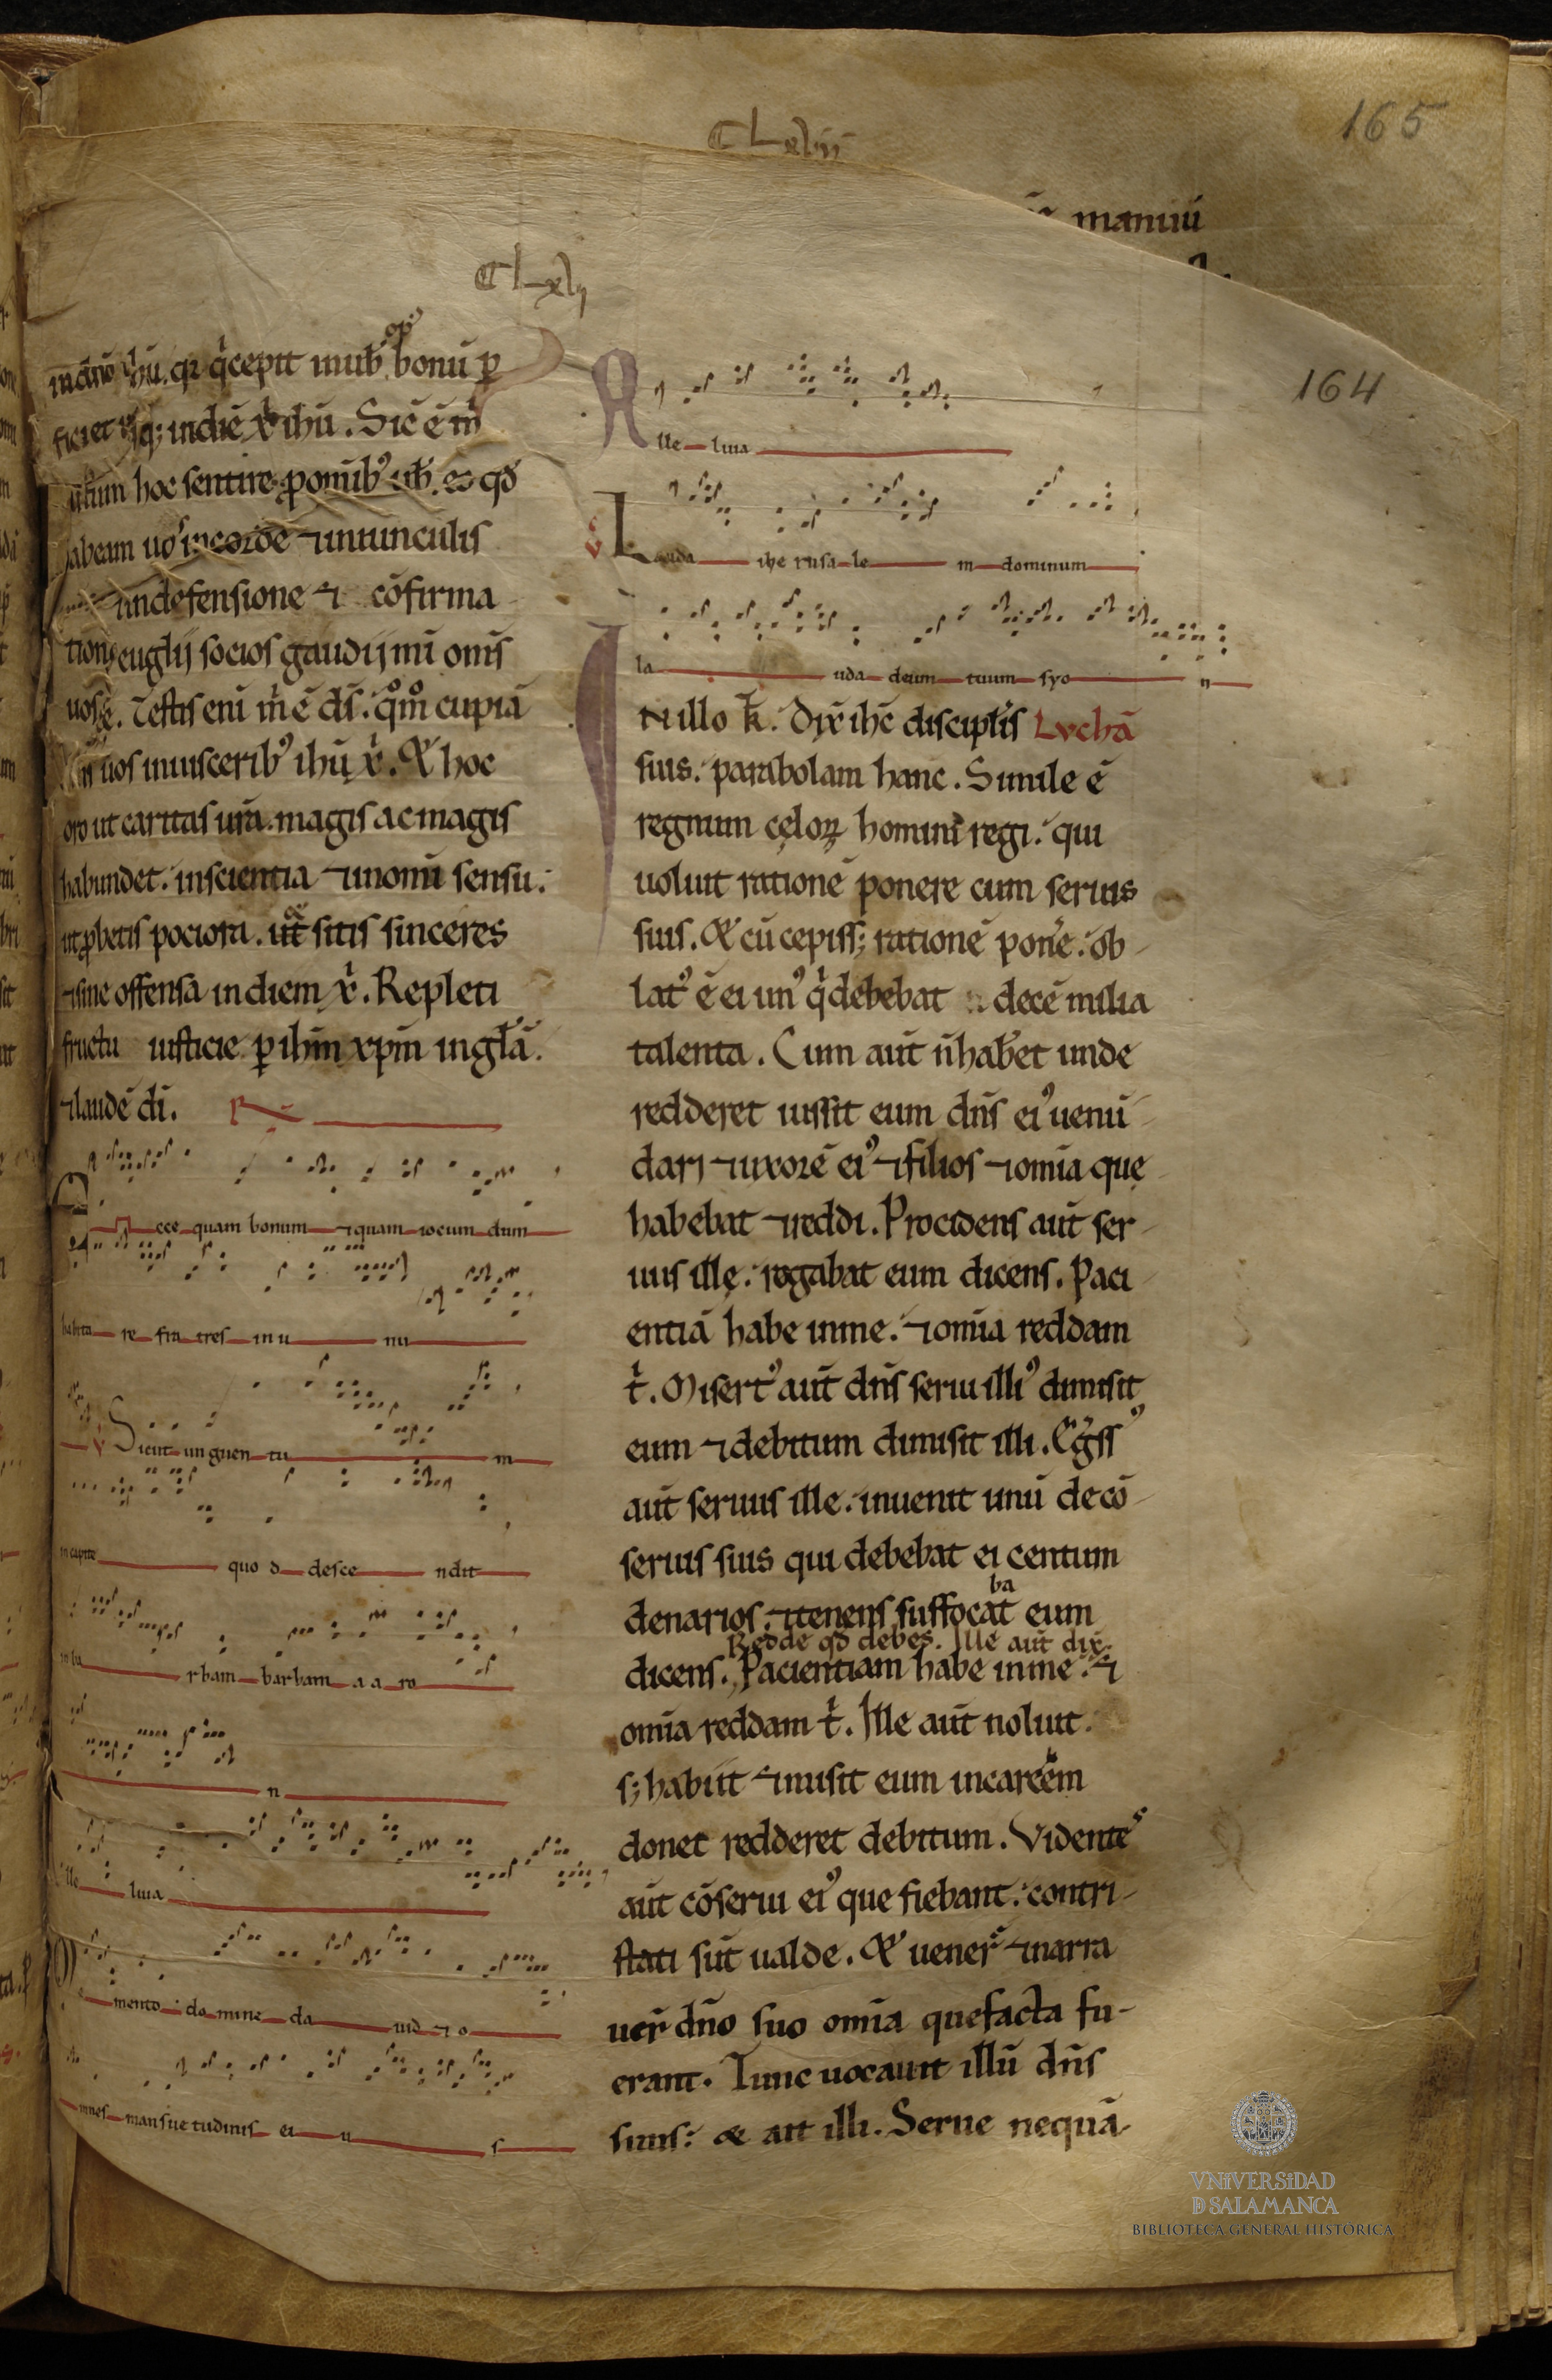 165
CLxlііі
maniiū
CLxlіj
164
in dn̄o ih̄u. qꝛ q̇cepit in uob̄ op' bonū ꝑ
ficiet usq; in diē xp̄i ih̄u. Sic ē m̄
iustum hoc sentire ꝓ omīb' uob̄. eo qd̄
habeam uo' in corde ⁊ in uinculis
⁊ in defensione ⁊ cōfirma
tione euglij socios gaudij mī om̄s
uos ēē. Testis enī m̄ ē ds̄. qm̊ cupiā
uos in uiscerib' ihū x̄. & hoc
oro ut caritas urā. magis ac magis
habundet. in scientia ⁊ in om̄i sensu.
ut ꝓbetis pociora. ut sitis sinceres
⁊ sine offensa in diem x̄. Repleti
fructu iusticie ꝑ ihm̄ xpm̄ in glā.
⁊ laudē dī. R̄
Ecce quam bonum ⁊ quam iocun dum
habita re fra tres in u nu
V Sicut unguen tu m
in capite quo d desce ndit
in ba rbam barbam a a ro
n
Alle luia
Me mento domine da uid ⁊ o
mnes mansue tudinis ei u s
Alle luia
V Lauda ihe rusa le m dominum
la uda deum tuum syo n
IN illo t̄. Dix̄ ihc̄ disciplis Lvchā
suis. parabolam hanc. Simile ē
regnum cęloꝝ homini regi. qui
uoluit rationē ponere cum seruis
suis. & cū cepiss; rationē pon̄e. ob
lat' ē ei un' q̇ debebat decē milia
talenta. Cum aut̄ n̄ hab̄et unde
redderet iussit eum dn̄s ei' uenū
dari ⁊ uxorē ei' ⁊ filios ⁊ omīa que
habebat ⁊ reddi. Procidens aut̄ ser
uus ille. rogabat eum dicens. Paci
entiā habe in me. ⁊ omīa reddam
t̄. Misert' aut̄ dn̄s serui illi' dimisit
eum ⁊ debitum dimisit illi. Egress'
aut̄ seruus ille. inuenit unū de cō
seruis suis qui debebat ei centum
denarios. ⁊ tenens suffocabat eum
Redde qd̄ debes. Ille aut̄ dix̄.
dicens. Pacientiam habe in me. ⁊
omīa reddam t̄. Ille aut̄ noluit.
s; habiit ⁊ misit eum in carcēm
donec redderet debitum. Videntes
aut̄ cōserui ei' que fiebant. contri
stati sūt ualde. & uener̄ ⁊ narra
uer̄ dn̄o suo omīa que facta fu-
erant. Tunc uocauit illū dn̄s
suus. & ait illi. Serue nequā.
VNiVERSiDAD
D SALAMANCA
BIBLIOTECA GENERAL HISTÓRICA